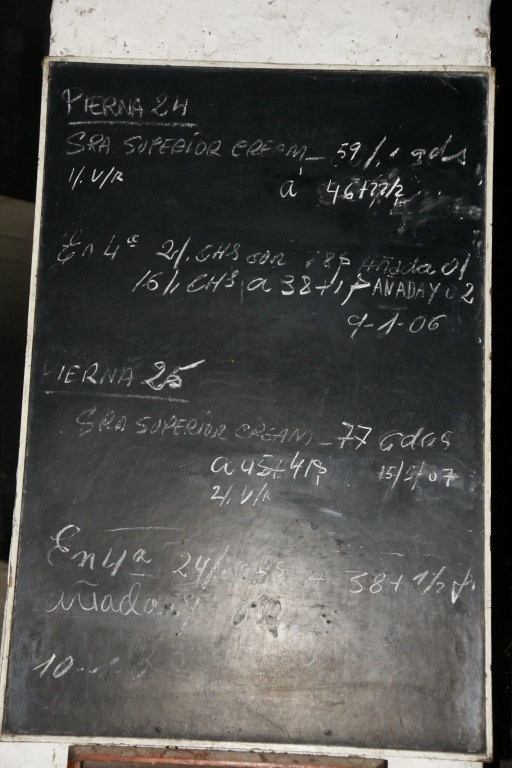 PIERNA 24
SRA SUPERIOR CREAM - 59 /. gds
1/. V/R a 46+
En 4ª 2/. CHS con Añada 01
16/. CHS a 38+1 AÑADA Y 02
9-1-06
PIERNA 25
SRA SUPERIOR CREAM - 77 gdas
a 45+ 15/5/07
2/. V/R
En 4ª 24/. CHS + 38+1/2
añada y
10-1